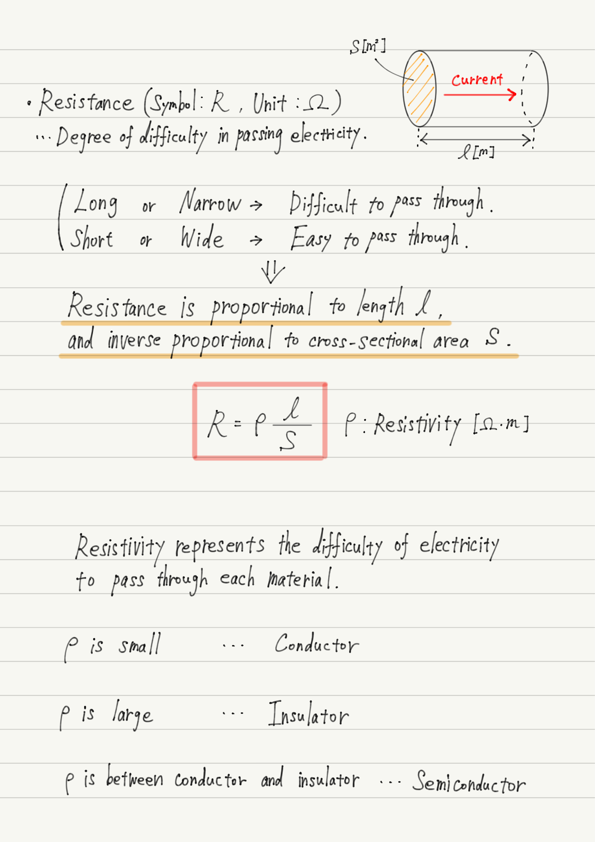 S[m²]
Current
l[m]
・Resistance (Symbol: R, Unit: Ω)
… Degree of difficulty in passing electricity.
Long or Narrow → Difficult to pass through.
Short or Wide → Easy to pass through.
⇓
Resistance is proportional to length l,
and inverse proportional to cross-sectional area S.
R = ρ l/S ρ: Resistivity [Ω·m]
Resistivity represents the difficulty of electricity
to pass through each material.
ρ is small … Conductor
ρ is large … Insulator
ρ is between conductor and insulator … Semiconductor